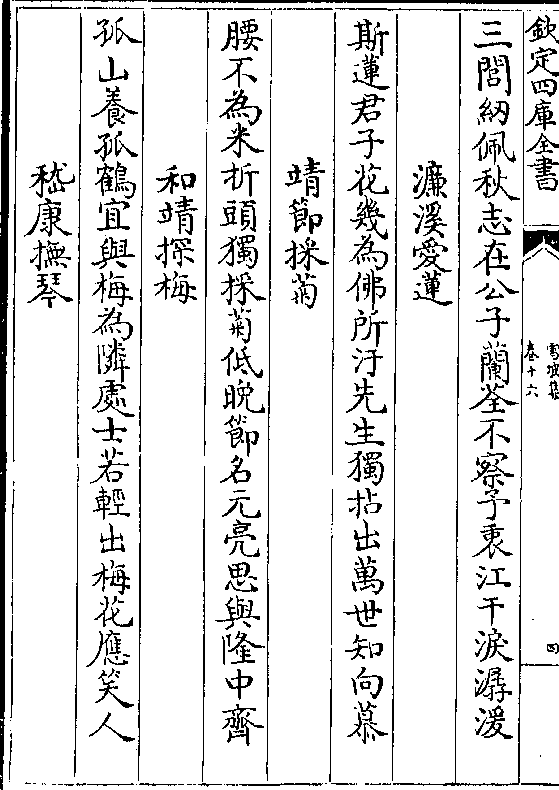 欽定四庫全書
雪坡集
卷十六
四
三閭紉佩秋志在公子蘭荃不察予衷江干淚潺湲
濂溪愛蓮
斯蓮君子花幾為佛所汙先生獨拈出萬世知向慕
靖節採菊
腰不為米折頭獨採菊低晚節名元亮思與隆中齊
和靖探梅
孤山養孤鶴宜與梅為隣處士若輕出梅花應笑人
嵇康撫琴